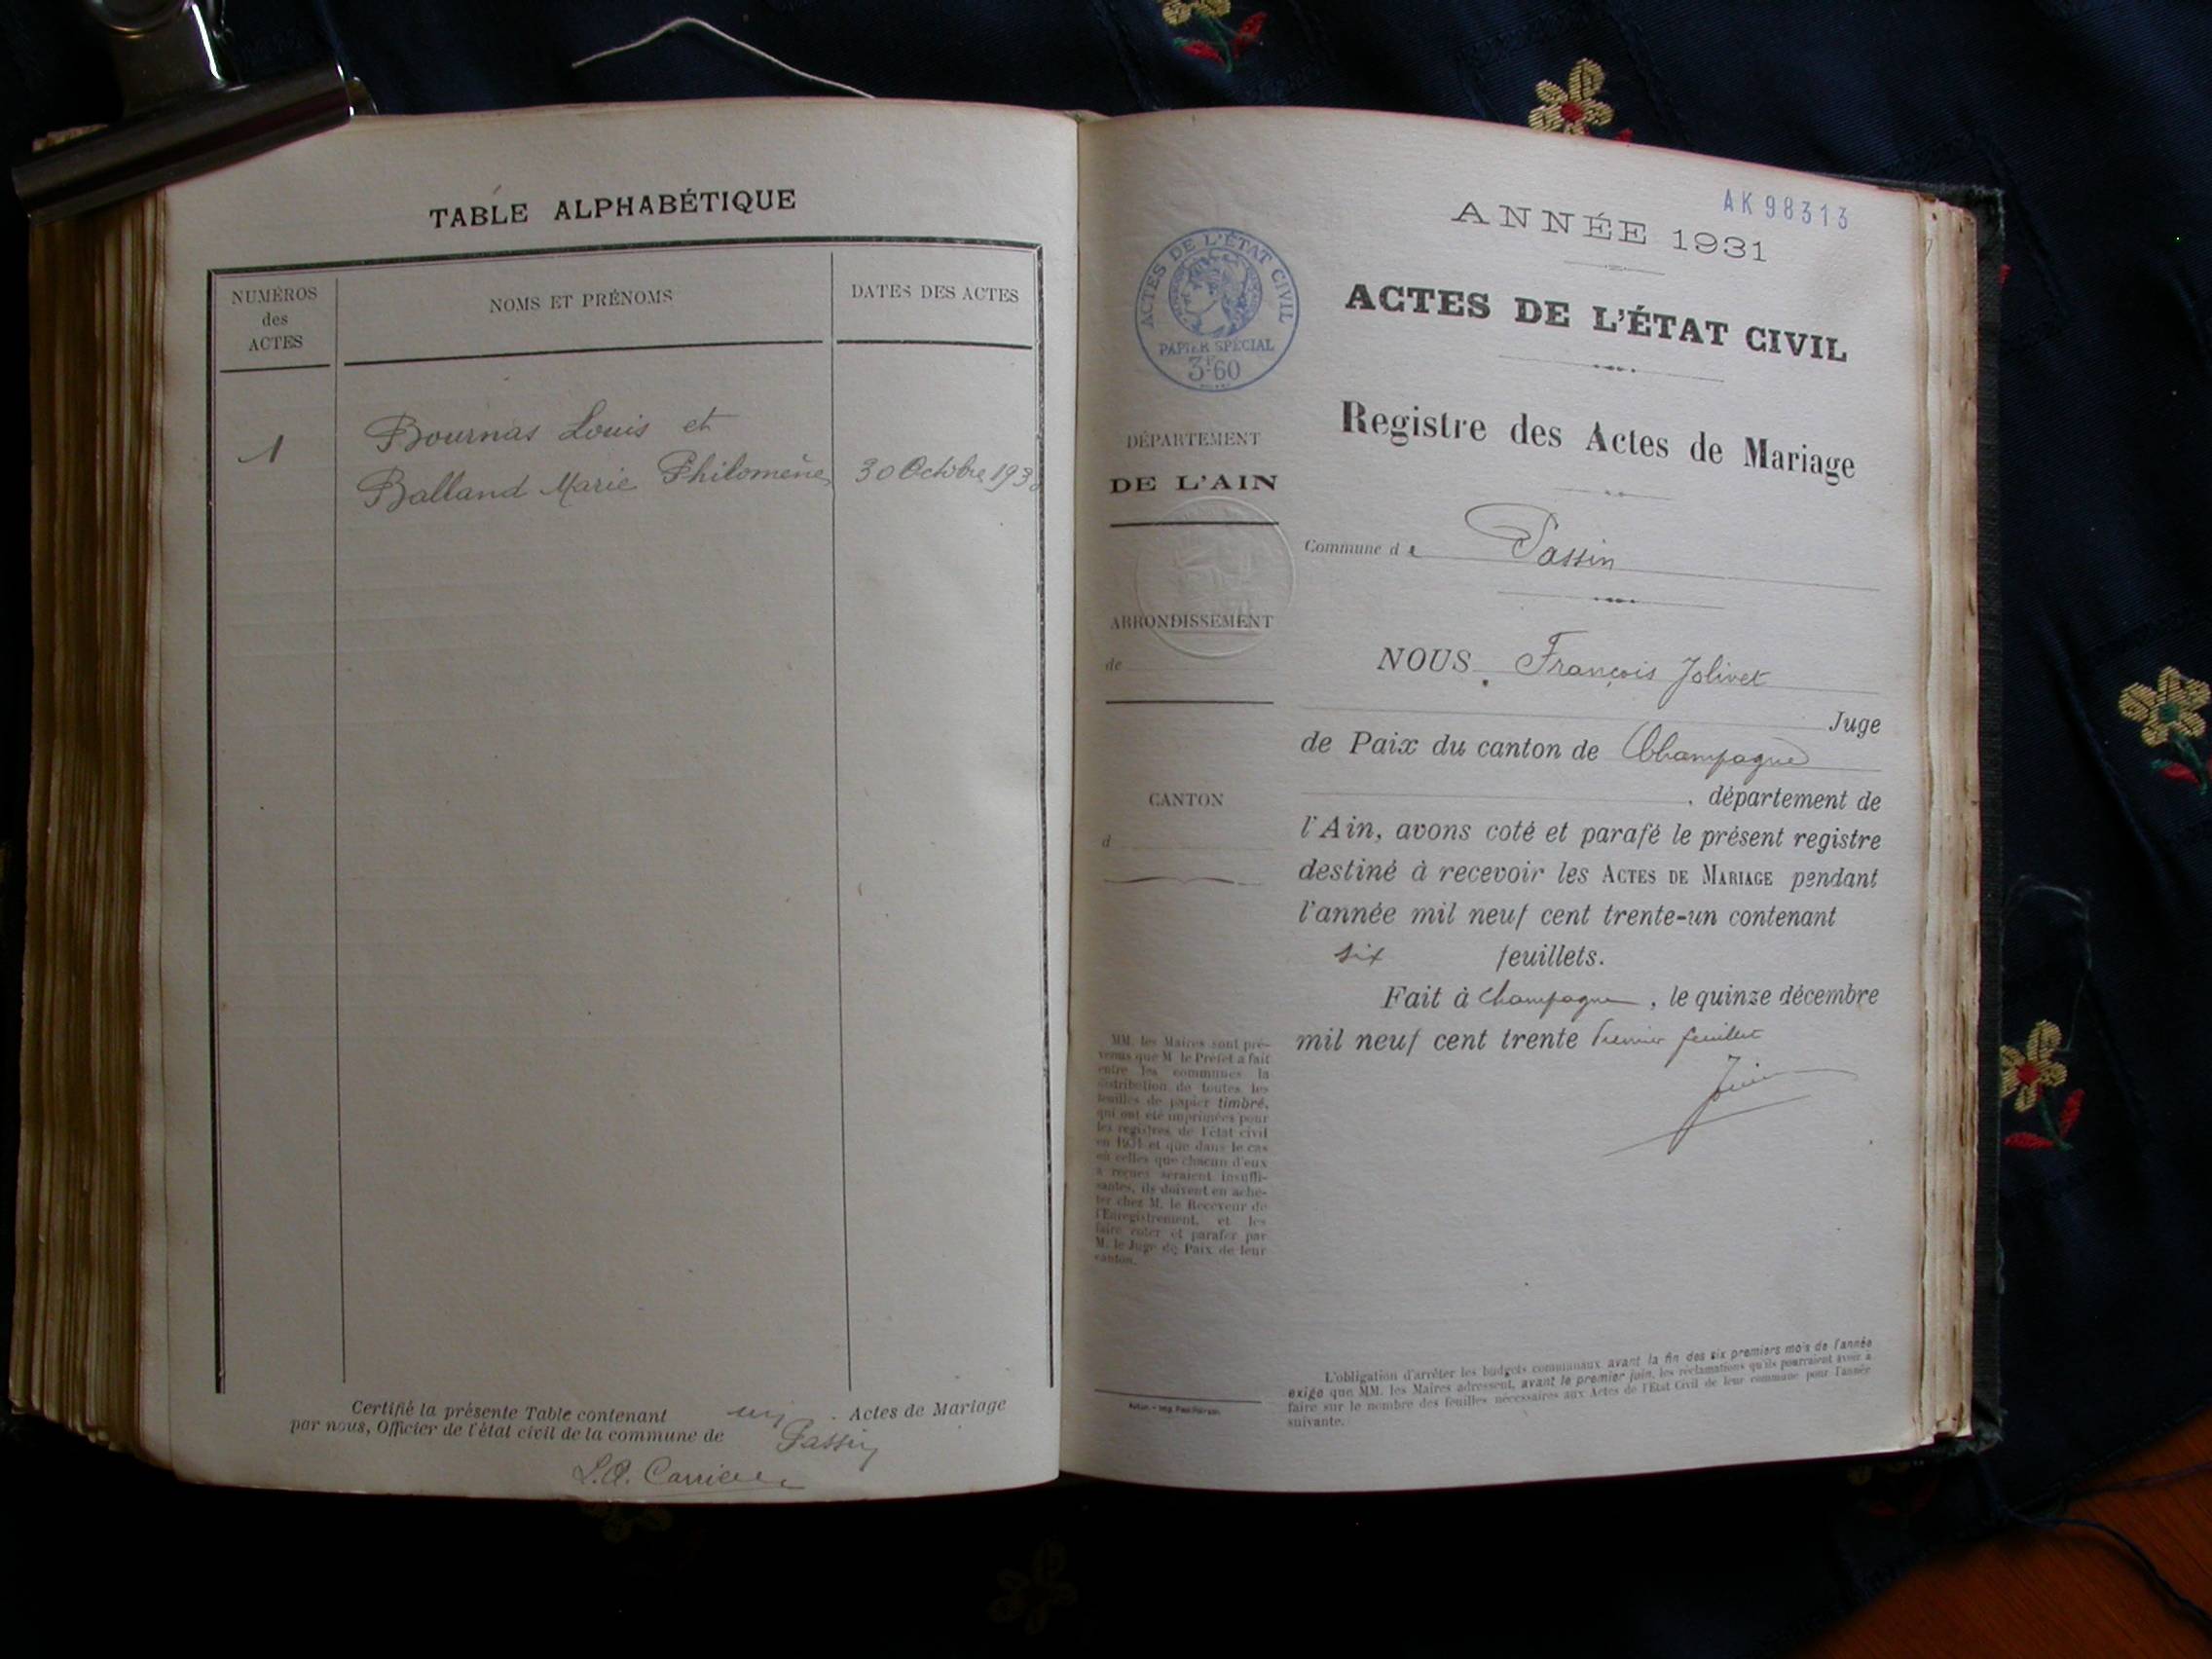 TABLE ALPHABÉTIQUE
NUMÉROS
des
ACTES
NOMS ET PRÉNOMS
DATES DES ACTES
1
Bournas Louis et
Balland Marie Philomène
30 Octobre 193
Certifié la présente Table contenant un Actes de Mariage
par nous, Officier de l'état civil de la commune de Passin
AK 98313
ANNÉE 1931
ACTES DE L'ÉTAT CIVIL
PAPIER SPÉCIAL
3F60
ACTES DE L'ÉTAT CIVIL
Registre des Actes de Mariage
DÉPARTEMENT
DE L'AIN
Commune de Passin
ARRONDISSEMENT
de
NOUS François Jolivet
Juge
de Paix du canton de Champagne
CANTON
d
, département de
l'Ain, avons coté et parafé le présent registre
destiné à recevoir les ACTES DE MARIAGE pendant
l'année mil neuf cent trente-un contenant
six feuillets.
Fait à Champagne, le quinze décembre
mil neuf cent trente Premier feuillet
MM. les Maires sont pré-
venus que M. le Préfet a fait
entre les communes la
distribution de toutes les
feuilles de papier timbré,
qui ont été imprimées pour
les registres de l'état civil
en 1931 et que dans le cas
où celles que chacun d'eux
a reçues seraient insuffi-
santes, ils doivent en ache-
ter chez M. le Receveur de
l'Enregistrement, et les
faire coter et parafer par
M. le Juge de Paix de leur
canton.
L'obligation d'arrêter les budgets communaux avant la fin des six premiers mois de l'année
exige que MM. les Maires adressent, avant le premier juin, les réclamations qu'ils pourraient avoir à
faire sur le nombre des feuilles nécessaires aux Actes de l'État Civil de leur commune pour l'année
suivante.